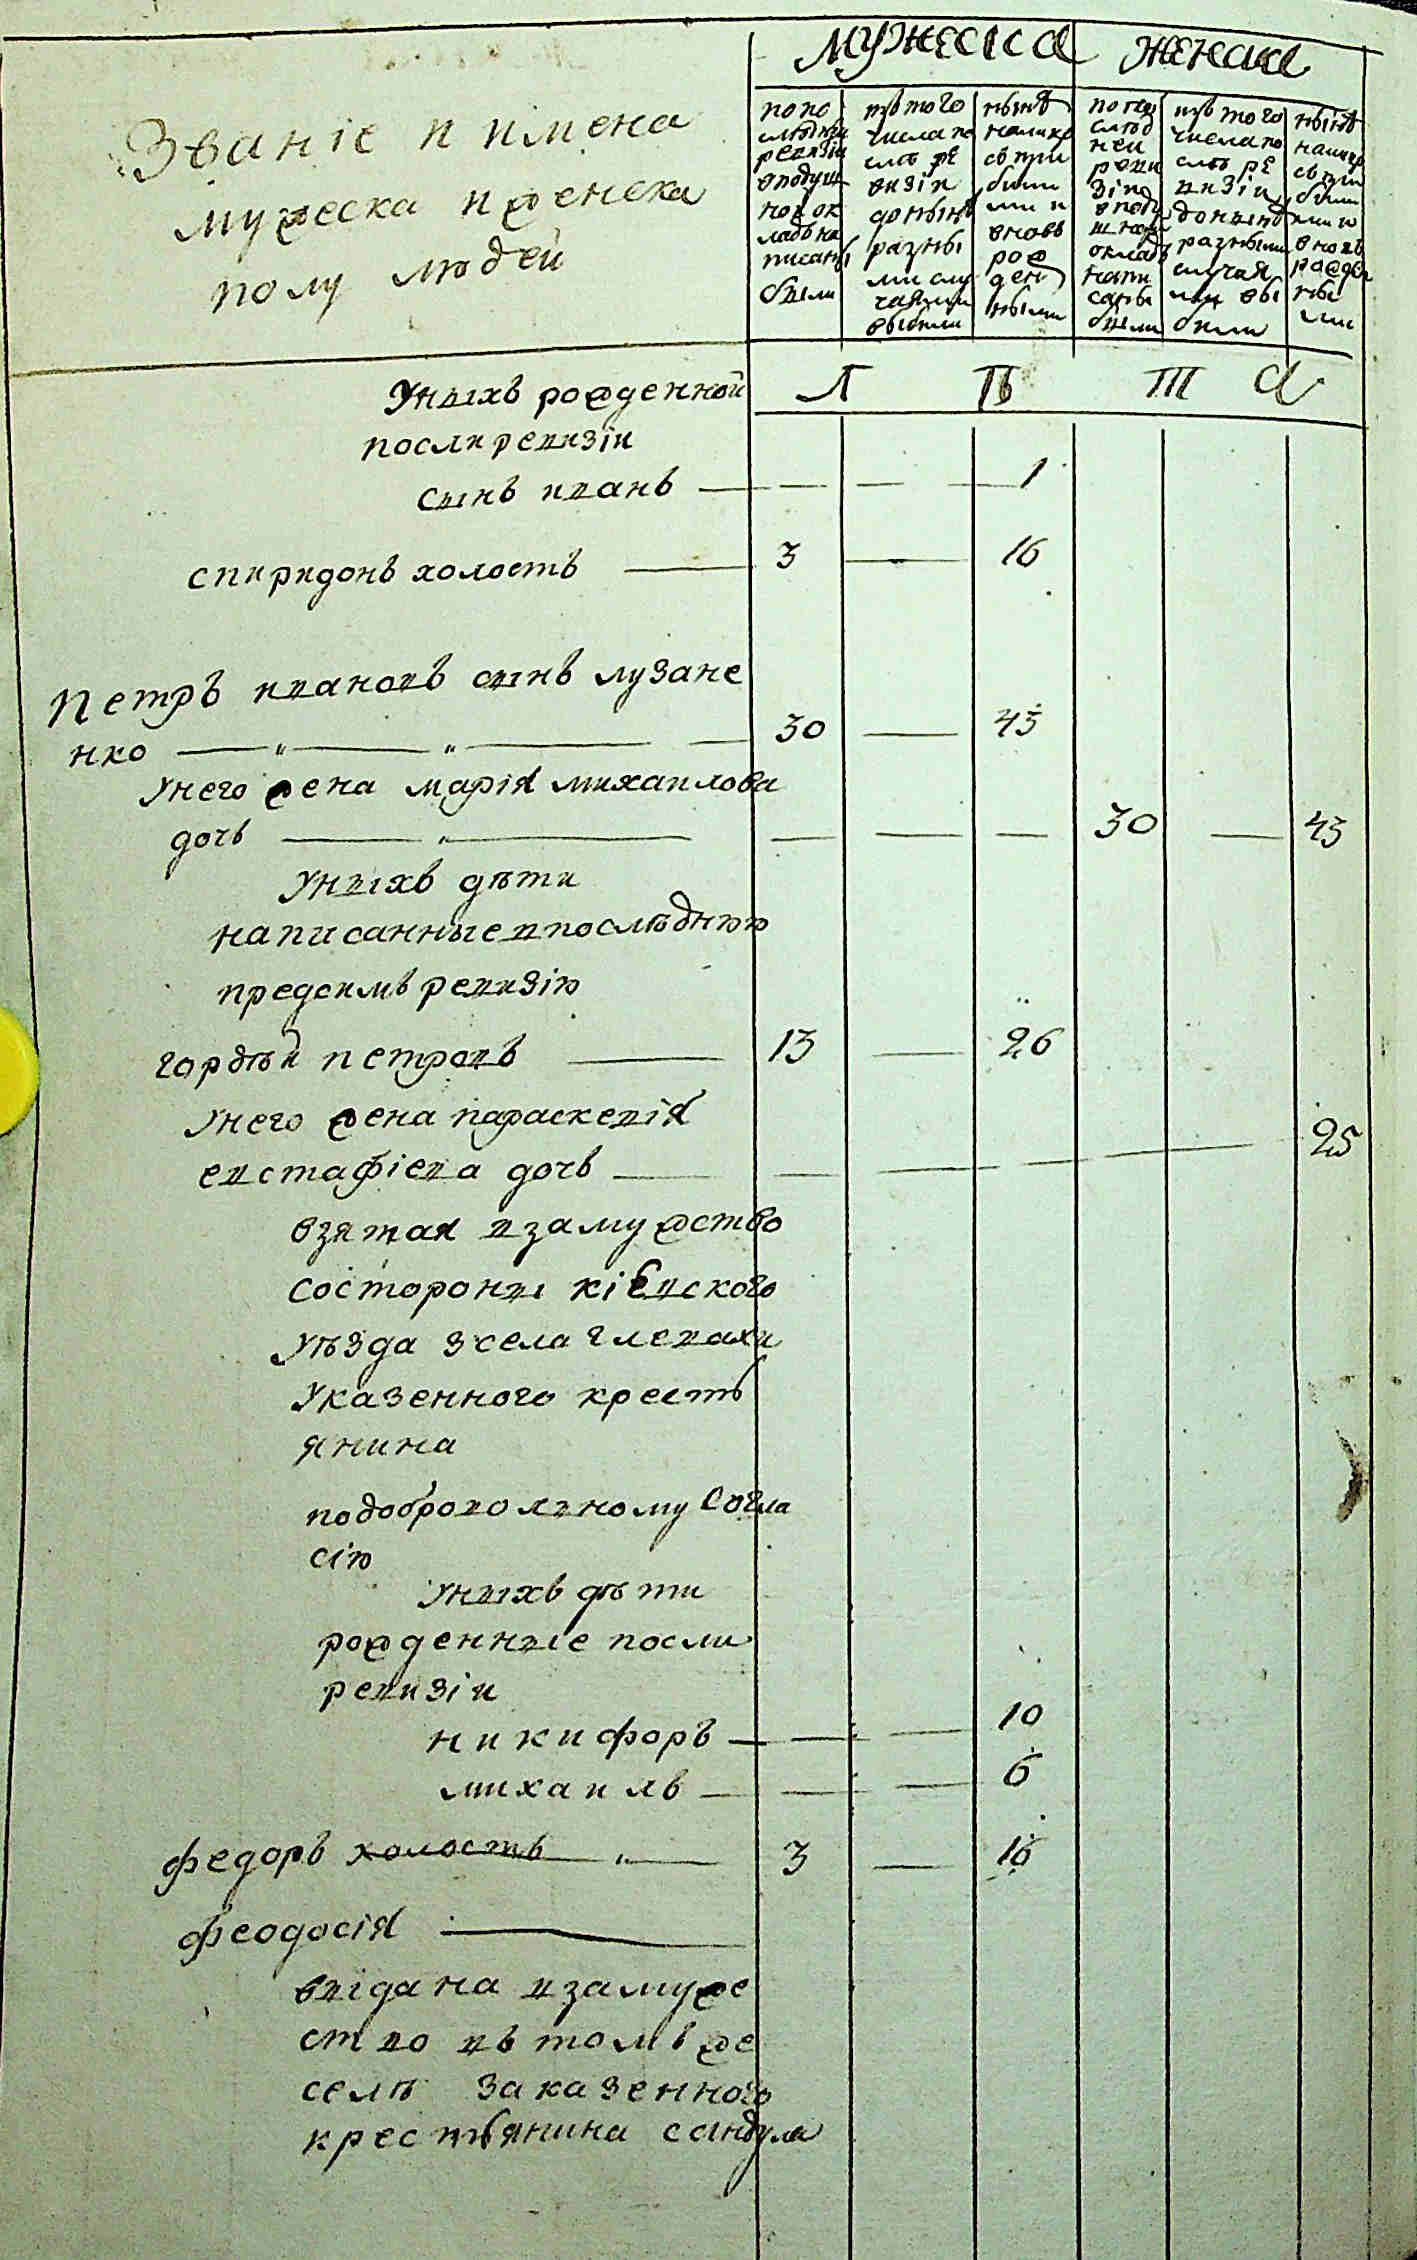 мужеска женска
Званіе и имена
мужеска и женска
полу людей
по по следней ревизіи в подушной оклад написаны были
изъ того числа после ревизіи до ныне разными случаями выбыли
ныне на лицо съ прибылими и вновь рожденными
по последней ревизіи в подушной окладъ написаны были
изъ того числа по сле ревизіи до ныне разными случаями выбыли
ныне на лицо съ прибылими и вновь рожденными
Л Ѣ Т А
Уныхъ рожденной
посли ревизіи
сынъ иванъ — — — 1
спиридонъ холостъ — 3 — 16
Петръ ивановъ сынъ лузане
нко — " — " — — 30 — 43
Унего жена марія михаилова
дочь — " — — — — 30 — 43
Уныхъ дѣти
написанные в послѣднюю
предсимъ ревизію
гордѣй петровъ — 13 — 26
Унего жена параскевія
евстафіева дочь — — — — — 25
взятая взамужство
состороны кіевского
Уѣзда зсела глевахи
Указенного кресть
янина
подобровольному согла
сію
Уныхъ дѣти
рожденные посли
ревизіи
никифоръ — — — 10
михаилъ — — — 6
федоръ холостъ " — 3 — 16
феодосія —
выдана взамуже
ство въ томъ же
селѣ заказенного
крестьянина сандула